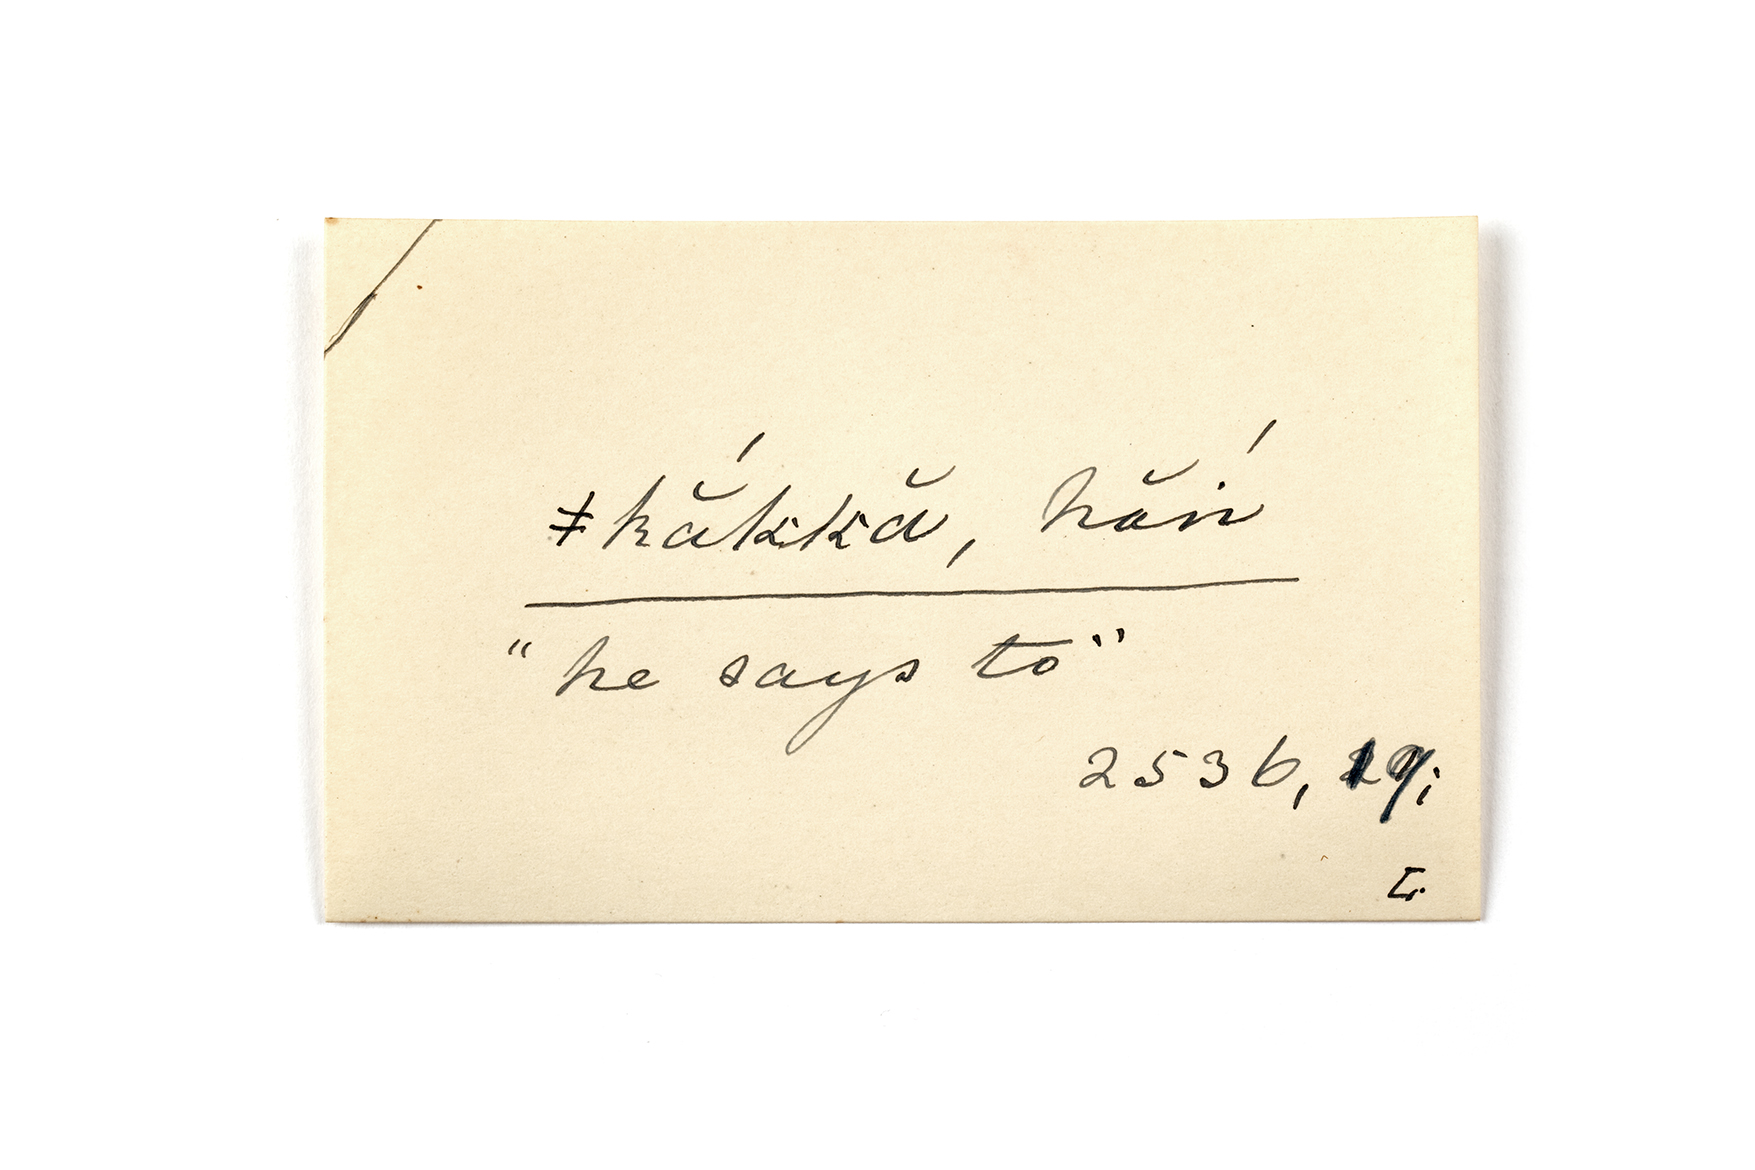 ǂkắkkă, hắń
"he says to"
2536, 19;
L.